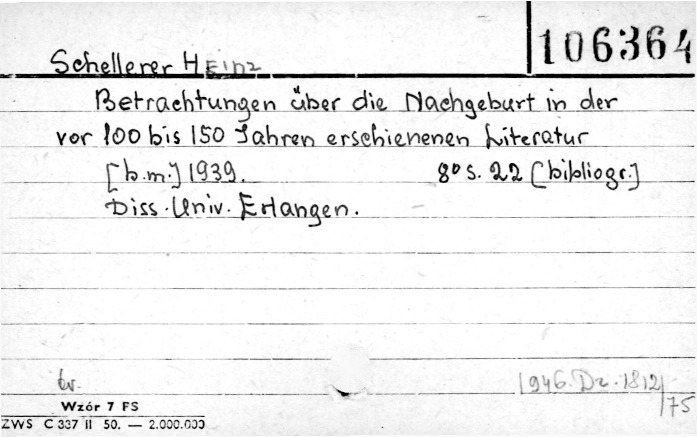 106364
Schellerer Heinz
Betrachtungen über die Nachgeburt in der
vor 100 bis 150 Jahren erschienenen Literatur
[b.m.] 1939. 8° s. 22 [bibliogr.]
Diss. Univ. Erlangen.
1946. Dz. 1812/75
Wzór 7 FS
ZWS C 337 II 50. — 2.000.000